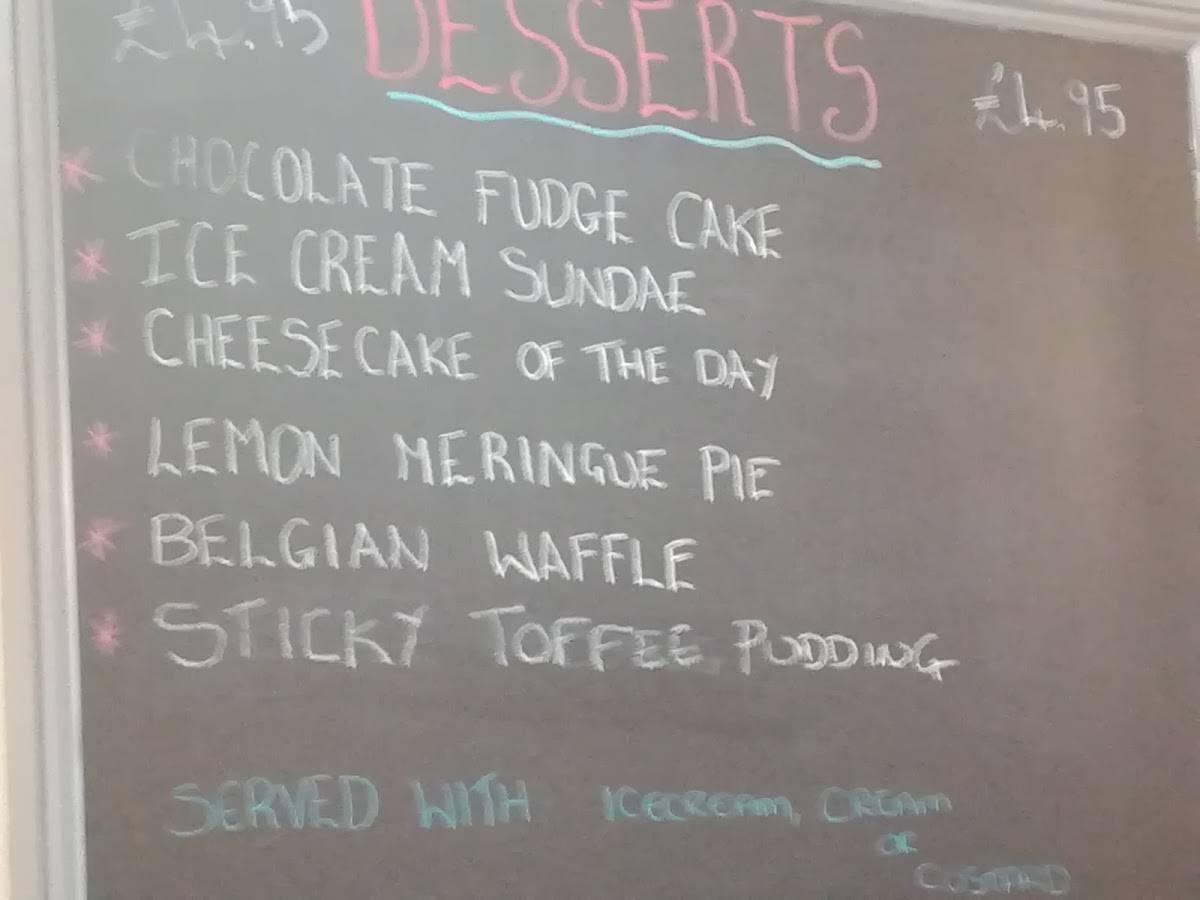 £4.95 DESSERTS £4.95
* CHOCOLATE FUDGE CAKE
* ICE CREAM SUNDAE
* CHEESECAKE OF THE DAY
* LEMON MERINGUE PIE
* BELGIAN WAFFLE
* STICKY TOFFEE PUDDING
SERVED WITH ICECREAM, CREAM
OR
CUSTARD